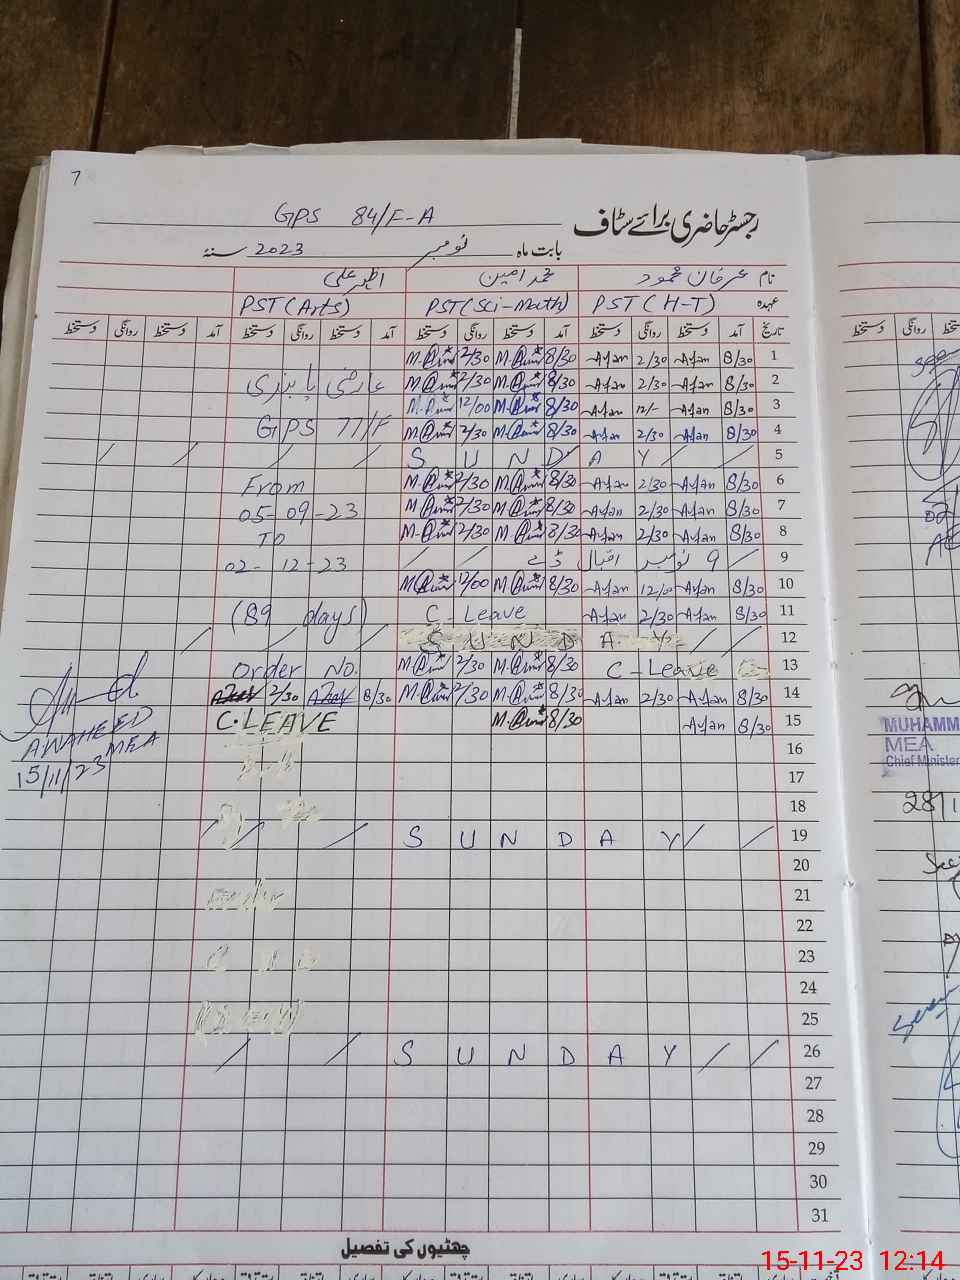 7
GPS 84/F-A
رجسٹر حاضری برائے سٹاف
بابت ماہ نومبر 2023 سنۂ
نام عرفان محمود محمد امین اظہر علی
عہدہ PST (H-T) PST (Sci-Math) PST (Arts)
تاریخ آمد دستخط روانگی دستخط آمد دستخط روانگی دستخط آمد دستخط روانگی دستخط آمد دستخط روانگی دستخط
1 8/30 Arfan 2/30 Arfan 8/30 M.Amin 2/30 M.Amin
2 8/30 Arfan 2/30 Arfan 8/30 M.Amin 2/30 M.Amin عارضی
3 8/30 Arfan 12/- Arfan 8/30 M.Amin 12/00 M.Amin
4 8/30 Arfan 2/30 Arfan 8/30 M.Amin 2/30 M.Amin GPS 77/F
5 S U N D A Y
6 8/30 Arfan 2/30 Arfan 8/30 M.Amin 2/30 M.Amin From
7 8/30 Arfan 2/30 Arfan 8/30 M.Amin 2/30 M.Amin 05-09-23
8 8/30 Arfan 2/30 Arfan 8/30 M.Amin 2/30 M.Amin To
9 9 نومبر اقبال ڈے 02-12-23
10 8/30 Arfan 12/00 Arfan 8/30 M.Amin 12/00 M.Amin
11 8/30 Arfan 2/30 Arfan C-Leave (89 days)
12 S U N D A Y
13 C-Leave 8/30 M.Amin 2/30 M.Amin Order No.
14 8/30 Arfan 2/30 Arfan 8/30 M.Amin 2/30 M.Amin 8/30 2/30
15 8/30 Arfan 8/30 M.Amin C.LEAVE
16
17
18
19 S U N D A Y
20
21
22
23
24
25
26 S U N D A Y
27
28
29
30
31
A WAHEED
MEA
15/11/23
چھٹیوں کی تفصیل
دستخط روانگی
MUHAMM
MEA
Chief Minister
15-11-23 12:14